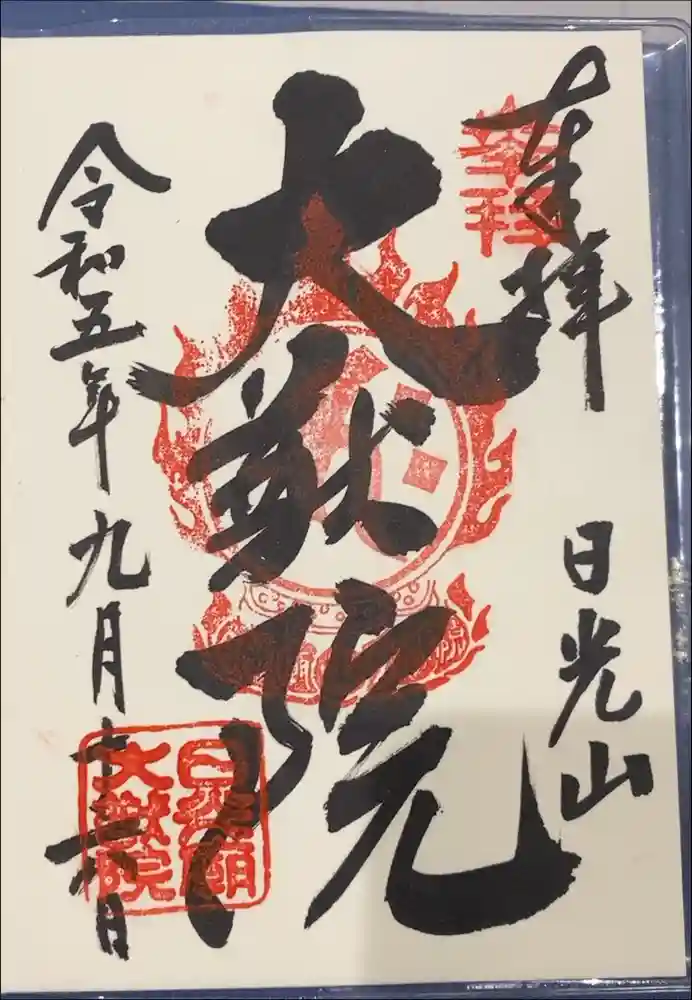 奉拝
日光山
大猷院
令和五年九月十六日
奉拝
日光廟
大猷院